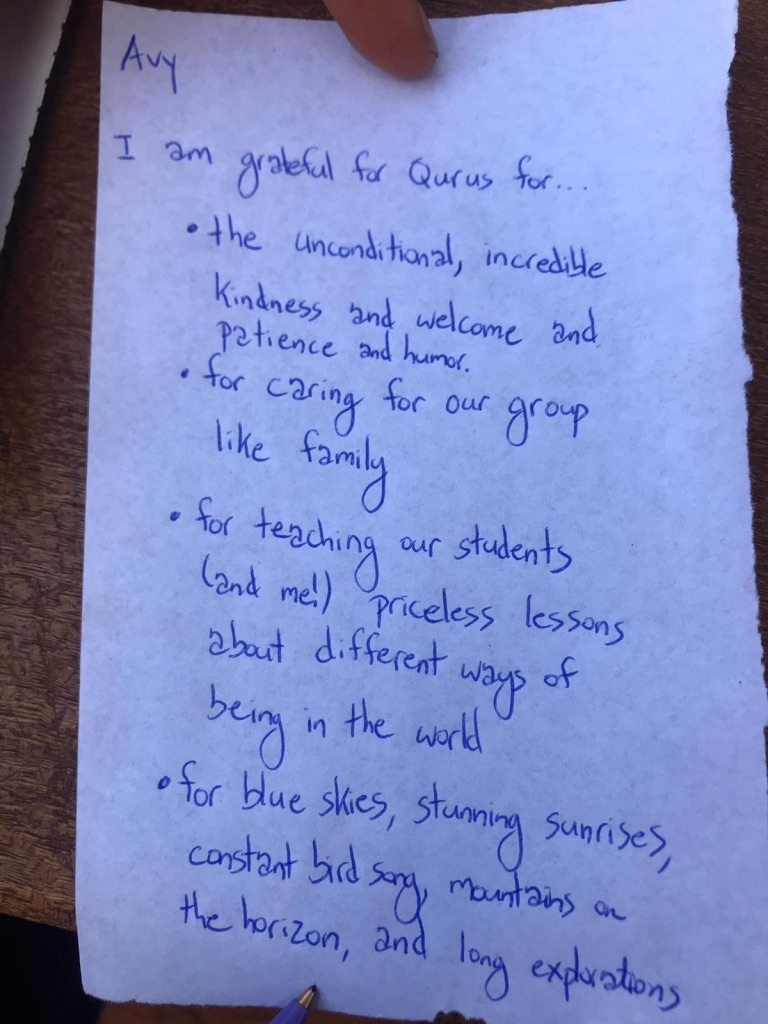 Avy
I am grateful for Qurus for...
• the unconditional, incredible
kindness and welcome and
patience and humor.
• for caring for our group
like family
• for teaching our students
(and me!) priceless lessons
about different ways of
being in the world
• for blue skies, stunning sunrises,
constant bird song, mountains on
the horizon, and long explorations